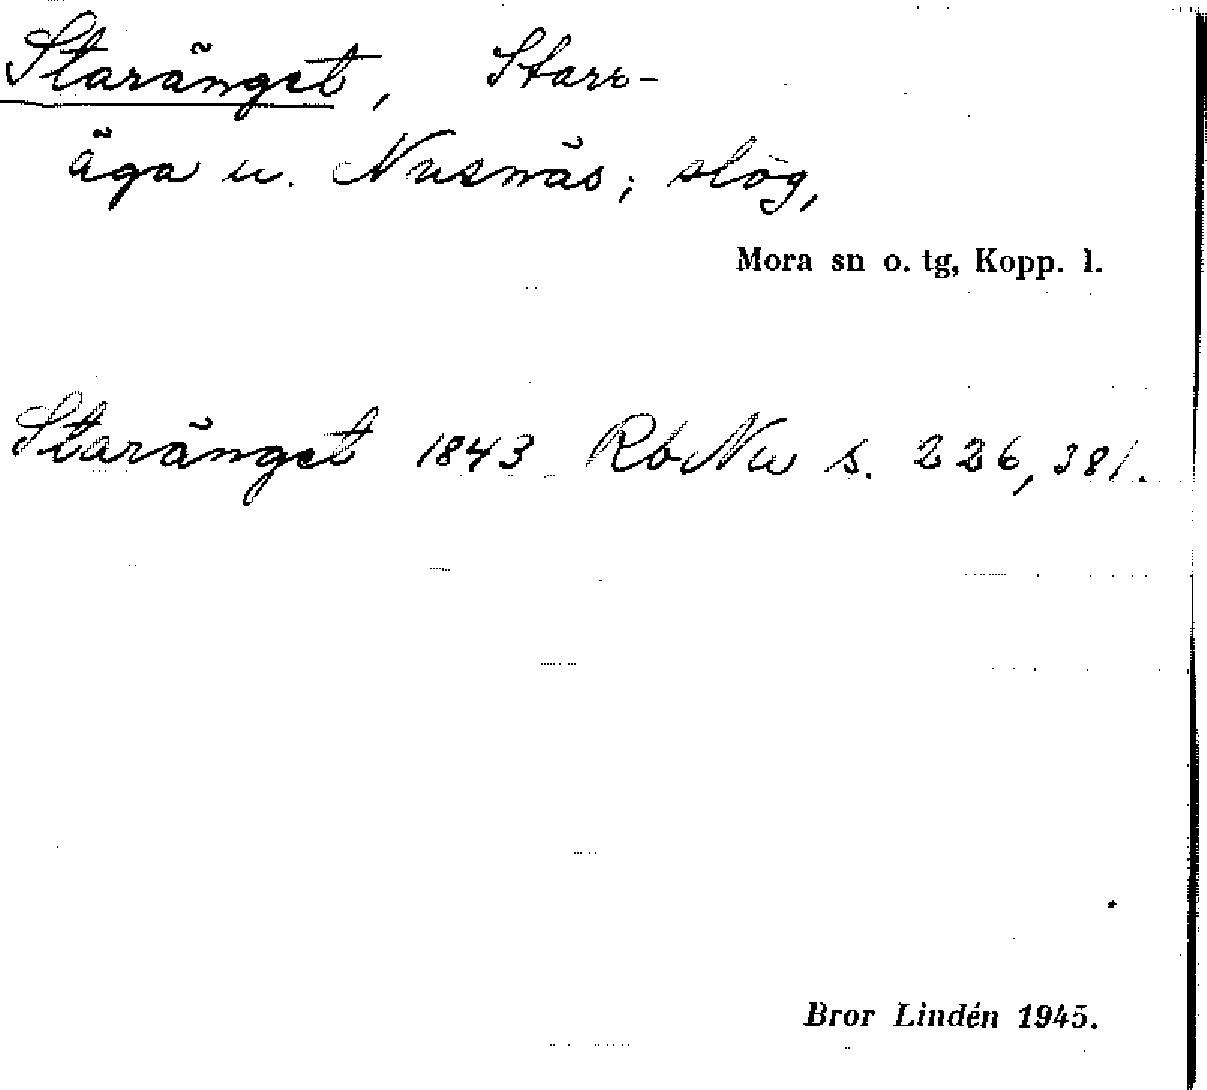 Staränget, Starr-
äga u. Nusnäs; slög,
Mora sn o. tg, Kopp. l.
Staränget 1843 RbNu s. 226, 381.
Bror Lindén 1945.